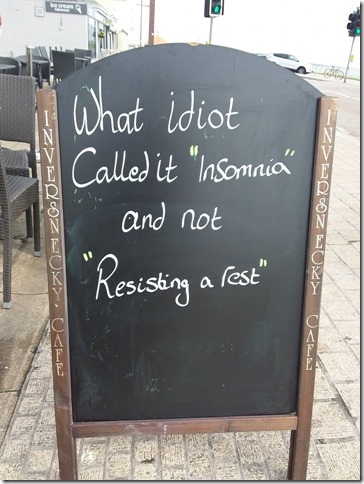 ice cream
takeaway
What idiot
Called it "Insomnia"
and not
"Resisting a rest"
INVERSNECKY CAFE
INVERSNECKY CAFE